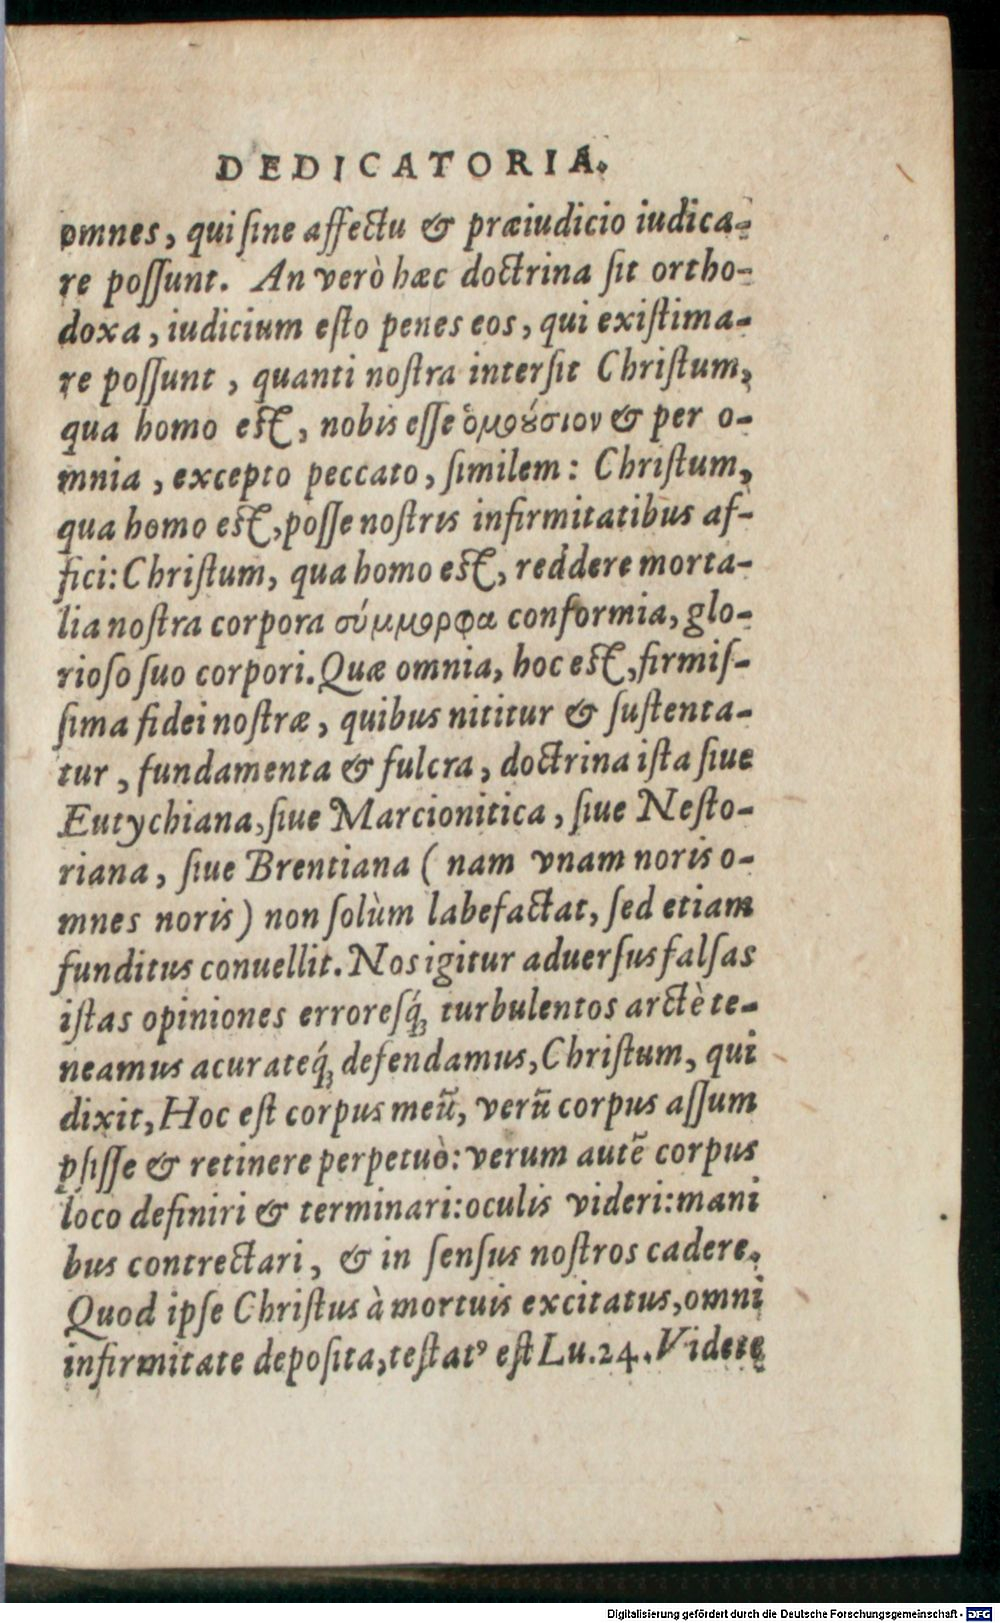 DEDICATORIA.
omnes, qui ſine affectu & præiudicio iudica-
re poſſunt. An verò hæc doctrina ſit ortho-
doxa, iudicium eſto penes eos, qui exiſtima-
re poſſunt, quanti noſtra interſit Chriſtum,
qua homo eſt, nobis eſſe ὁμοούσιον & per o-
mnia, excepto peccato, ſimilem: Chriſtum,
qua homo eſt, poſſe noſtris infirmitatibus af-
fici: Chriſtum, qua homo eſt, reddere morta-
lia noſtra corpora σύμμορφα conformia, glo-
rioſo ſuo corpori. Quæ omnia, hoc eſt, firmiſ-
ſima fidei noſtræ, quibus nititur & ſuſtenta-
tur, fundamenta & fulcra, doctrina iſta ſiue
Eutychiana, ſiue Marcionitica, ſiue Neſto-
riana, ſiue Brentiana ( nam vnam noris o-
mnes noris) non ſolùm labefactat, ſed etiam
funditus conuellit. Nos igitur aduerſus falſas
iſtas opiniones erroreſq́ꝫ turbulentos arctè te-
neamus acurateq́ꝫ defendamus, Chriſtum, qui
dixit, Hoc eſt corpus meũ, verũ corpus aſſum
pſiſſe & retinere perpetuò: verum autẽ corpus
loco definiri & terminari: oculis videri: mani
bus contrectari, & in ſenſus noſtros cadere.
Quod ipſe Chriſtus à mortuis excitatus, omni
infirmitate depoſita, teſtatꝰ eſt Lu. 24. Videte
Digitalisierung gefördert durch die Deutsche Forschungsgemeinschaft - DFG